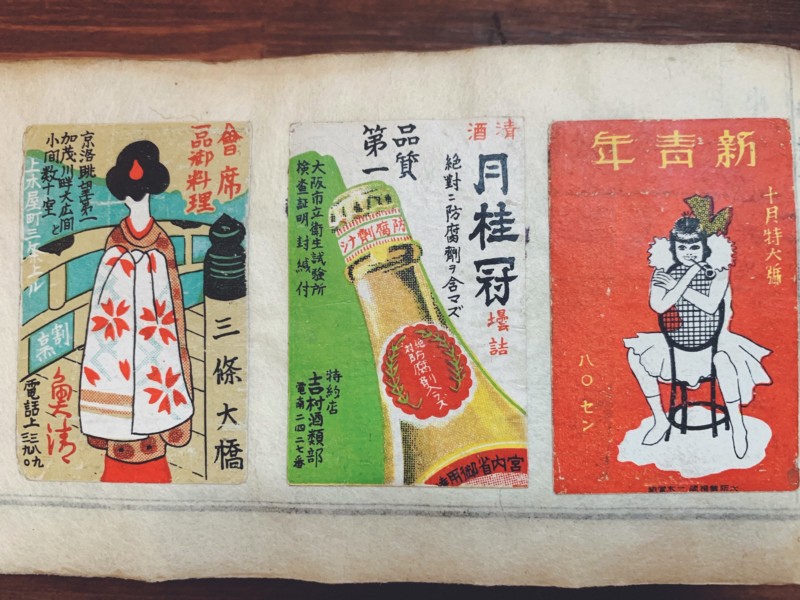 會席
一品御料理
京洛眺望第一
加茂川畔大広間と
小間数十室
上木屋町三条上ル
割烹
魚清
電話上
三條大橋
清酒
月桂冠
壜詰
絶對ニ防腐劑ヲ含マズ
品質
第一
大阪市立衛生試験所
検査証明封緘付
防腐劑ナシ
特約店
吉村酒類部
電南二四二七番
宮内省御用
新青年
十月特大号
八〇セン